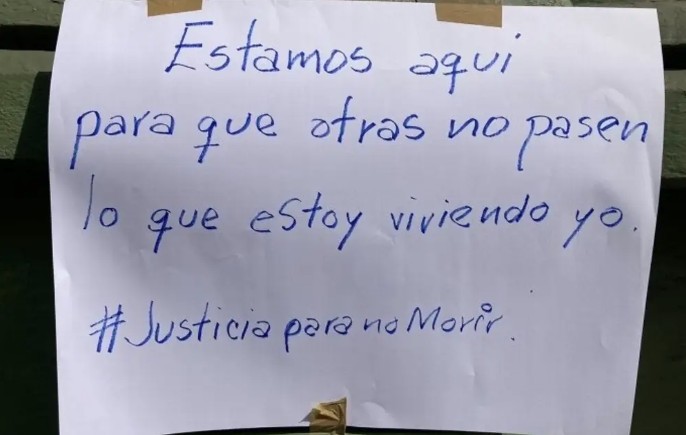 Estamos aqui
para que otras no pasen
lo que estoy viviendo yo.
#Justicia para no Morir.